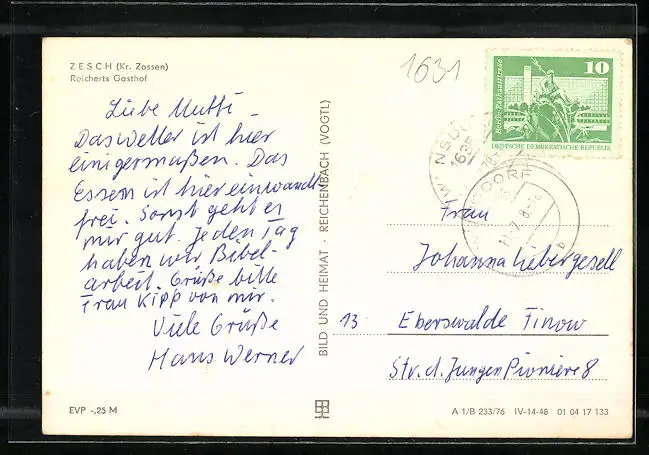 ZESCH (Kr. Zossen)
Reicherts Gasthof
1631
Berlin-Rathausstraße
10
DEUTSCHE DEMOKRATISCHE REPUBLIK
Liebe Mutti -
Das Wetter ist hier
einigermaßen. Das
Essen ist hier einwand-
frei. Sonst geht es
mir gut. Jeden Tag
haben wir Bibel-
arbeit. Grüße bitte
Frau Kipp von mir.
Viele Grüße
Hans Werner
BILD UND HEIMAT · REICHENBACH (VOGTL)
Frau
Johanna Liebergesell
13 Eberswalde Finow
Str. d. Jungen Pioniere 8
EVP -,25 M
A 1/B 233/76 IV-14-48 01 04 17 133